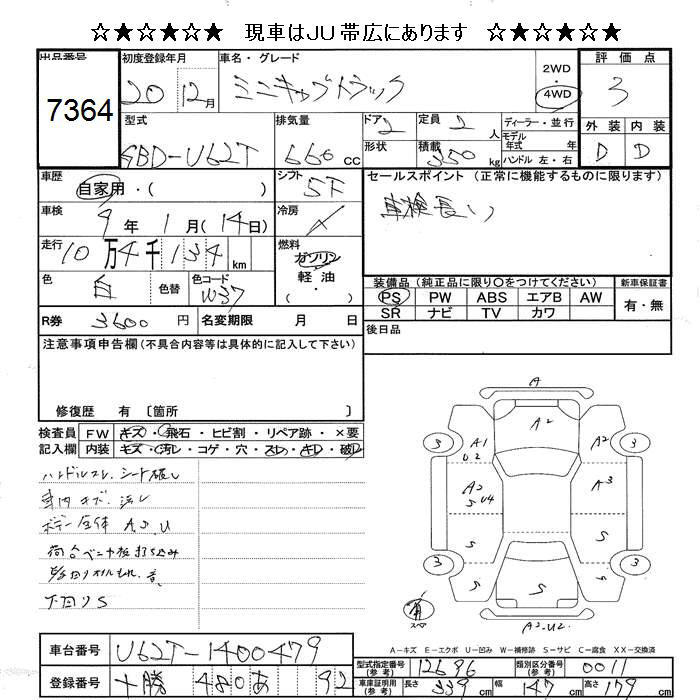 ☆★☆★☆★ 現車はJU帯広にあります ☆★☆★☆★
出品番号
7364
初度登録年月
20 12月
車名・グレード
ミニキャブトラック
2WD
4WD
評価点
3
外装 内装
D D
型式
GBD-U62T
排気量
660cc
ドア
2
定員
2人
形状
積載
350kg
ディーラー・並行
モデル年式 年
ハンドル 左・右
車歴
自家用・( )
シフト
5F
車検
9年 1月(14日)
冷房
走行
10万4千134km
燃料
ガソリン
軽油
・( )
色
白
色替
色コード
W37
R券 3600円
名変期限 月 日
セールスポイント (正常に機能するものに限ります)
車検長い
装備品(純正品に限り○をつけてください)
PS PW ABS エアB AW
SR ナビ TV カワ
新車保証書
有・無
後日品
注意事項申告欄(不具合内容等は具体的に記入して下さい)
修復歴 有 〔箇所 〕
検査員記入欄
FW キズ・飛石・ヒビ割・リペア跡・×要
内装 キズ・汚レ・コゲ・穴・スレ・キレ・破レ
ハンドルスレ、シート破レ
車内キズ・汚レ
ボデー全体 A2、U
荷台ベニヤ板打ち込み
下回りS
A
A2
A1
U2
A2
3
3
A2
S U4
A3
S
S
3
3
S
S
S
スペア
A2-U2
A-キズ E-エクボ U-凹み W-補修跡 S-サビ C-腐食 XX-交換済
車台番号 U62T-1400479
登録番号 十勝 480 あ 92
型式指定番号(参考) 12696
類別区分番号(参考) 0011
車庫証明用(参考) 長さ 339cm 幅 147cm 高さ 179cm